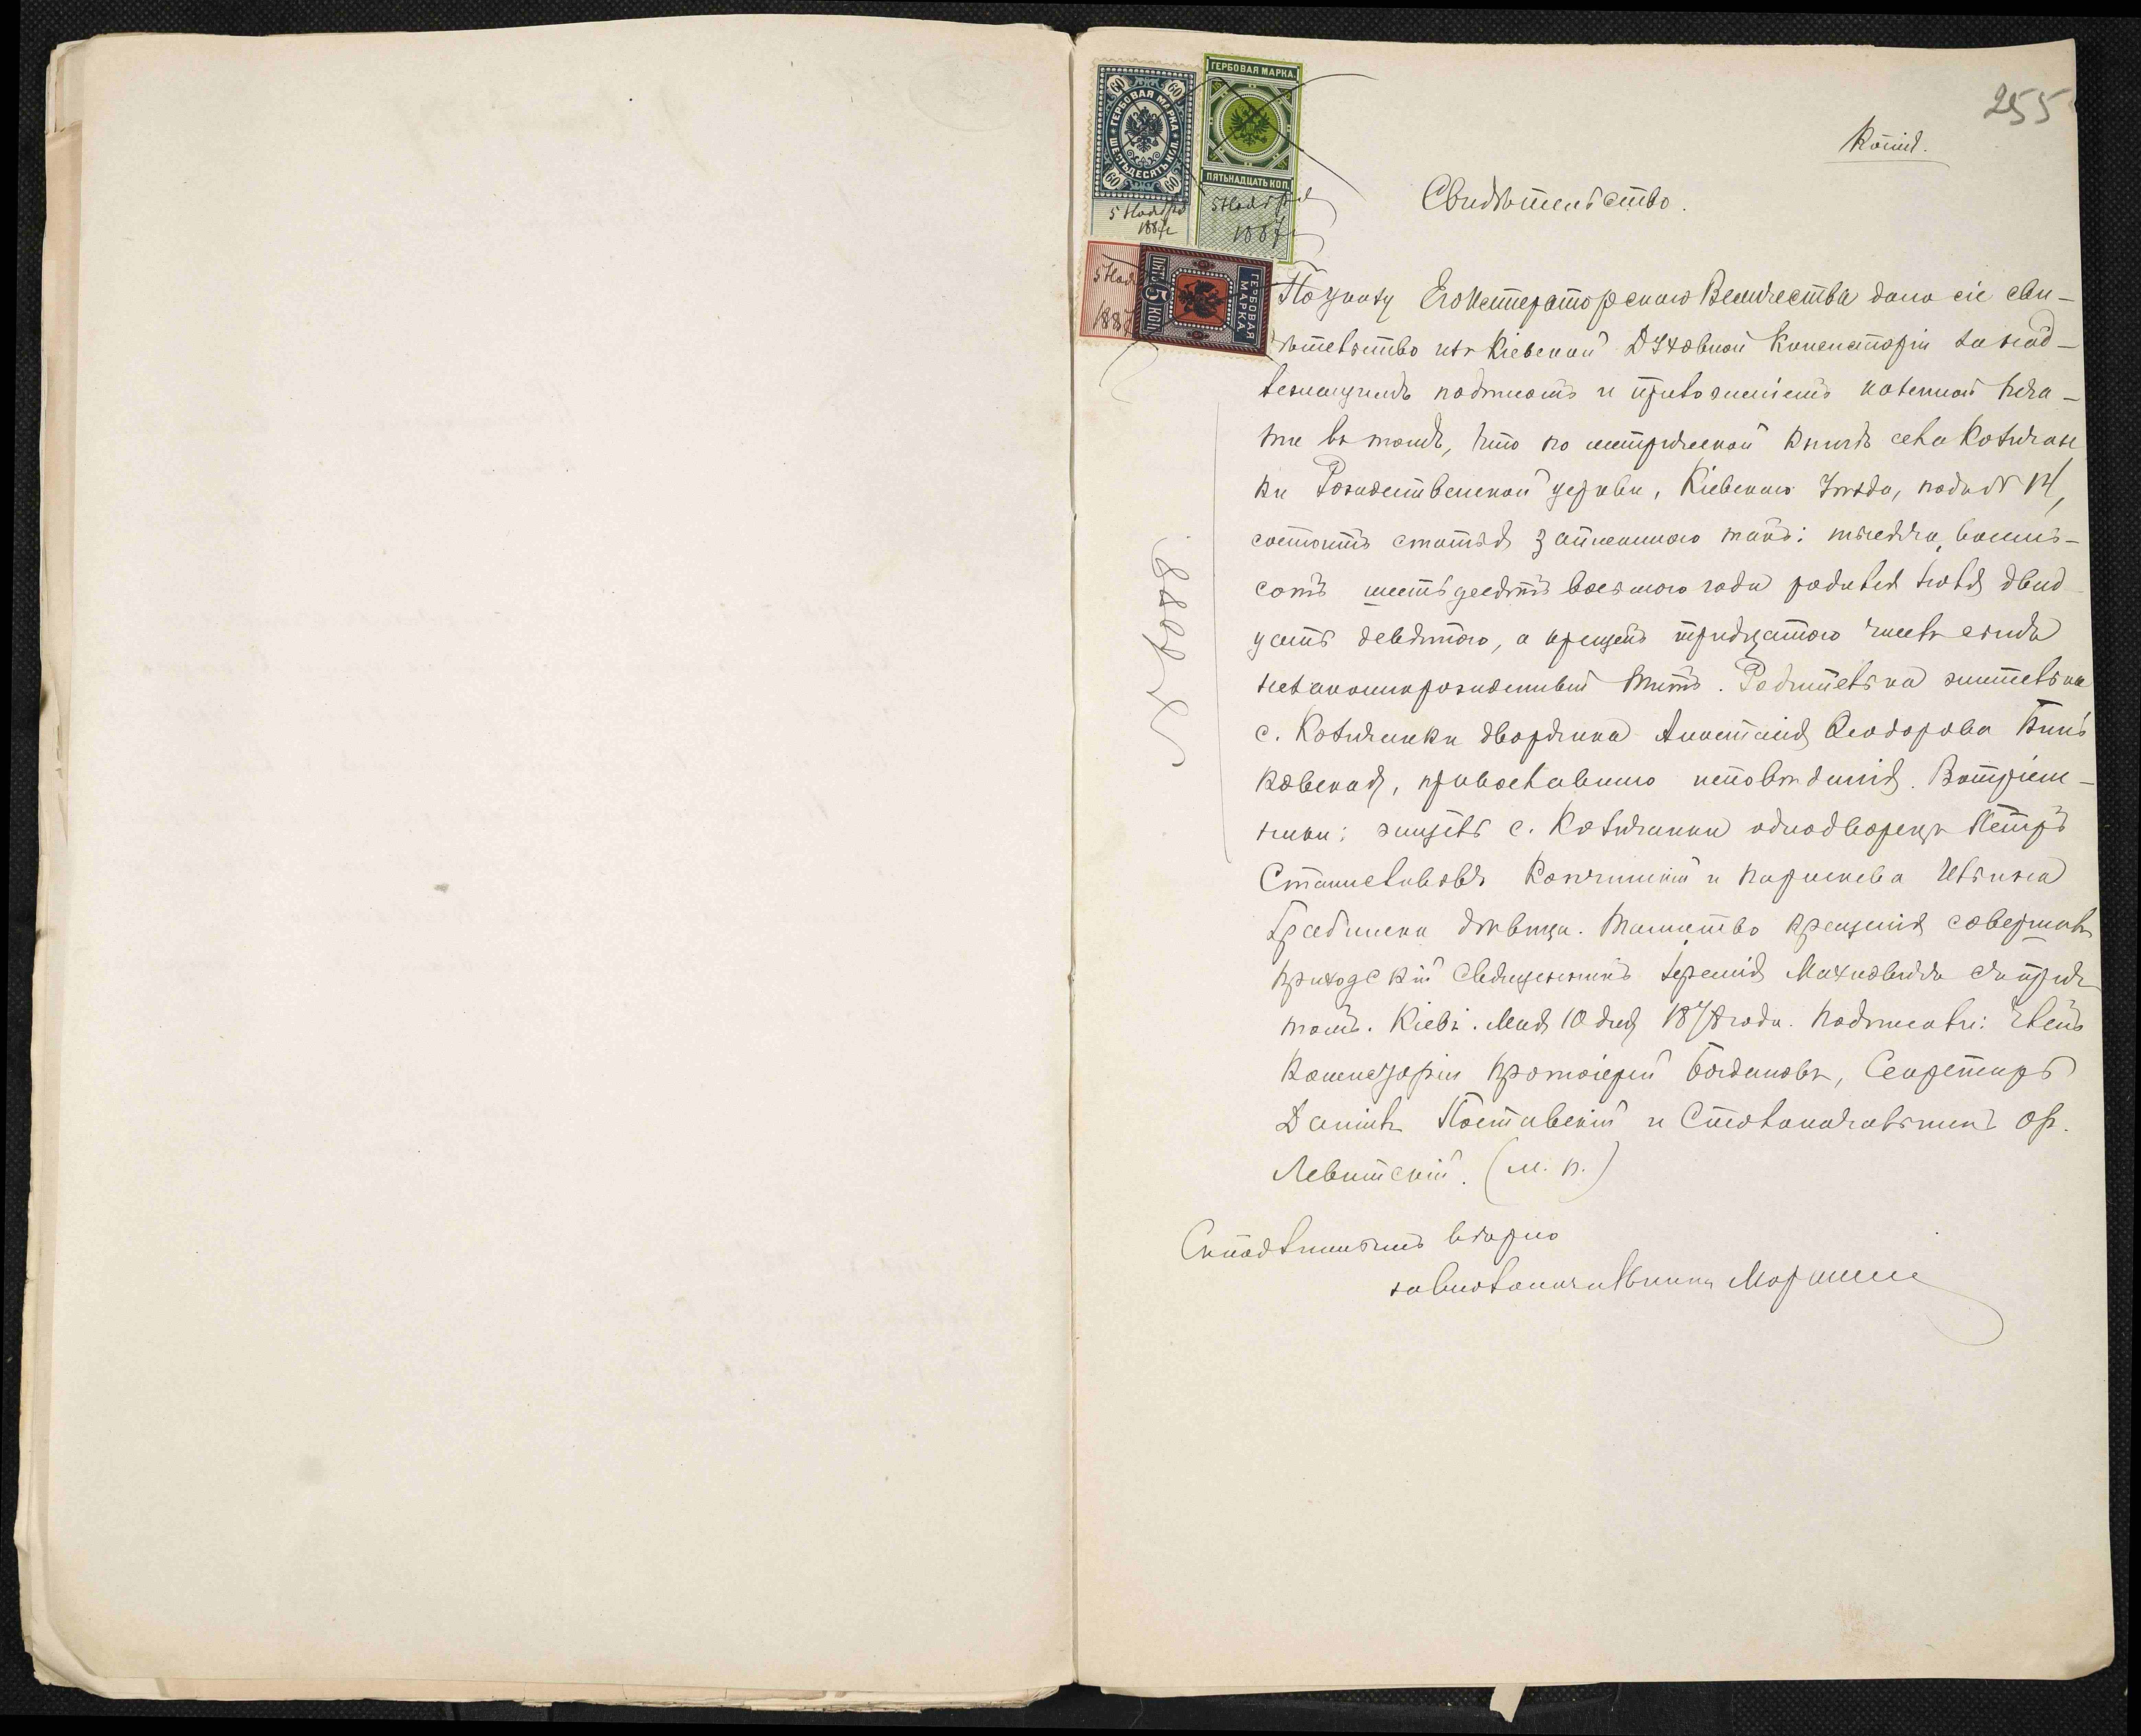 255
Копія.
ГЕРБОВАЯ МАРКА
ШЕСТЬДЕСЯТЪ КОП.
60 60 60 60
5 Ноября
1887 г
ГЕРБОВАЯ МАРКА.
ПЯТЬНАДЦАТЬ КОП.
5 Ноября
1887 г
ГЕРБОВАЯ МАРКА
ПЯТЬ 5 КОП.
5 Ноя
1887
Свидѣтельство.
По указу Его Императорскаго Величества дано сіе сви-
ѣтельство изъ Кіевской Духовной Консисторіи за над-
лежащимъ подписомъ и приложеніемъ казенной печа-
ти въ томъ, что по метрической книгѣ села Котлу
ки Рождественской церкви, Кіевскаго Уѣзда, подъ №
состоитъ статья записанною такъ: тысяча восемь-
сотъ шестьдесятъ восьмого года родился Іюля двад
цать девятого, а крещенъ тридцатого числа сына
незаконнорожденный Титъ. Родительна жительна
с. дворянка Анастасія Ѳеодорова
ковская, православнаго исповѣданія. Воспріем-
ники: житель с. однодворецъ Петръ
Станиславовъ и Параскева
дѣвица. Таинство крещенія совершалъ
приходскій Священникъ Іеремія Махновичъ съ прич
томъ. Кіевъ. Мая 10 дня 187 года. Подписали: Членъ
Консисторіи Протоіерей Богдановъ, Секретарь
Даніилъ Поставскій и Столоначальникъ Ор.
Левитскій. (М. п.)
Съ подлиннымъ вѣрно
за Столоначальника